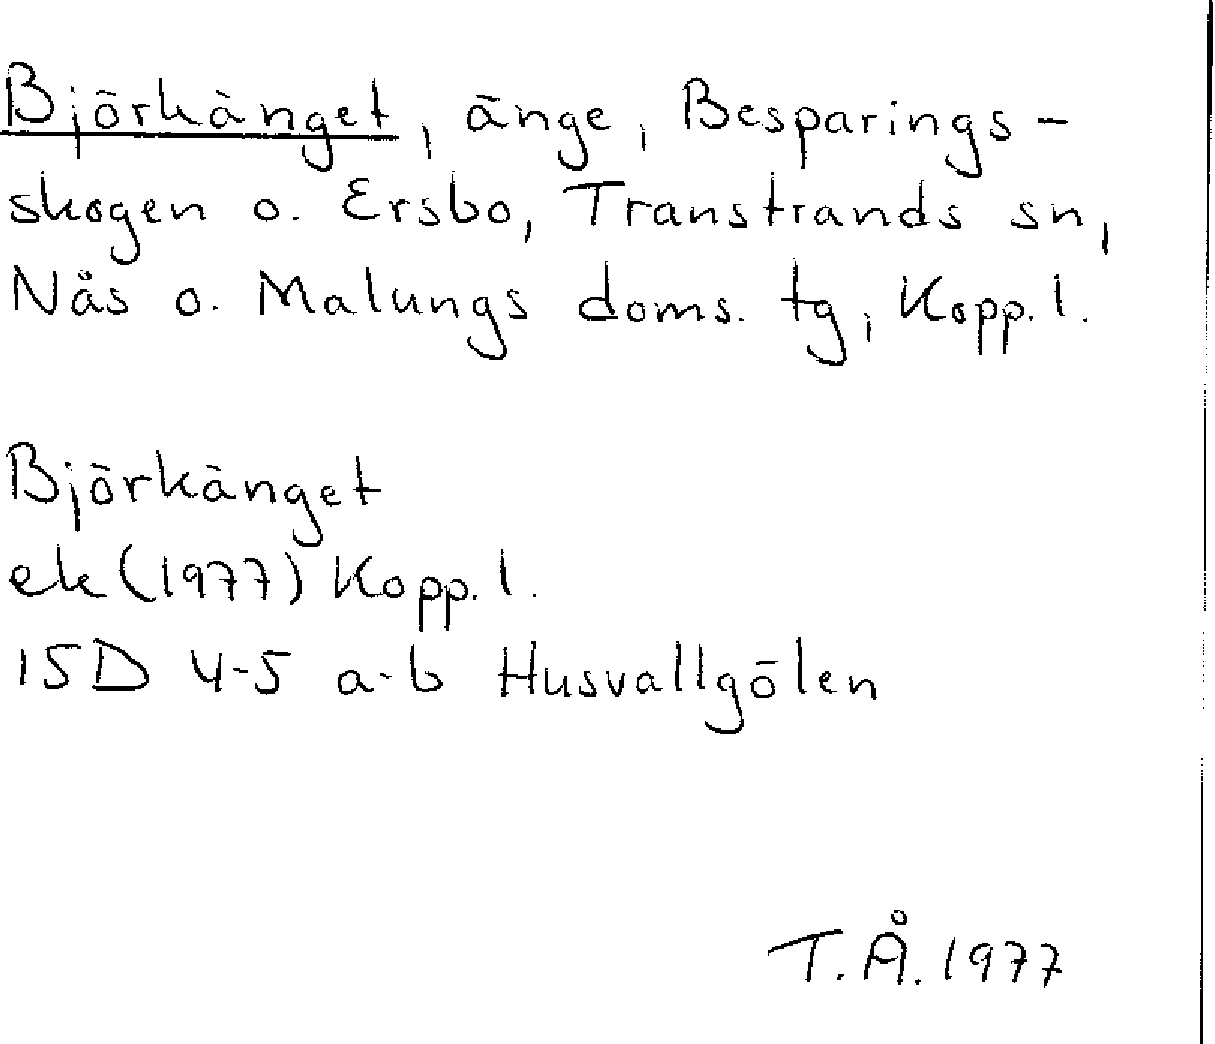 Björkänget, änge, Besparings-
skogen o. Ersbo, Transtrands sn,
Nås o. Malungs doms. tg, Kopp. l.
Björkänget
ek (1977) Kopp. l.
15D 4-5 a-b Husvallgölen
T.Å. 1977